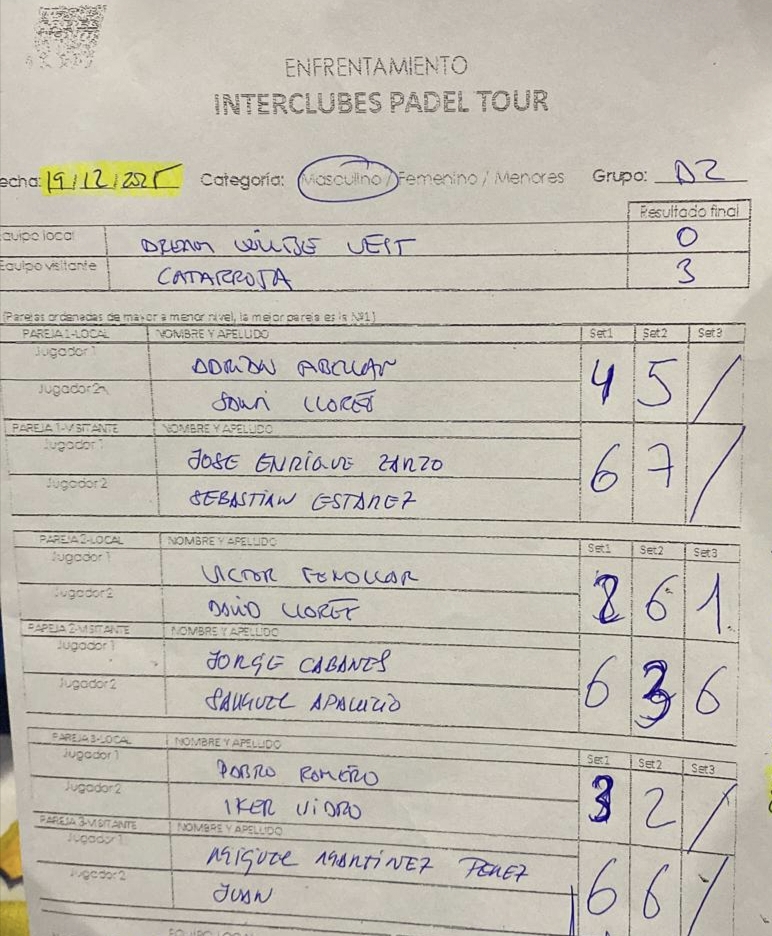 ENFRENTAMIENTO
INTERCLUBES PADEL TOUR
echa: 19/12/2025 Categoría: Masculino / Femenino / Menores Grupo: D2
Resultado final
quipo local DREAM WILLBE VEST 0
Equipo visitante CATARROJA 3
(Parejas ordenadas de mayor a menor nivel, la mejor pareja es la Nº1)
PAREJA 1-LOCAL NOMBRE Y APELLIDO Set1 Set2 Set3
Jugador 1 ADRIAN ABELLAN
Jugador 2 LLORET
4 5 /
PAREJA 1-VISITANTE NOMBRE Y APELLIDO
Jugador 1 JOSE ENRIQUE ZANZO
Jugador 2 SEBASTIAN ESTAREZ
6 7 /
PAREJA 2-LOCAL NOMBRE Y APELLIDO Set1 Set2 Set3
Jugador 1 VICTOR FENOLLAR
Jugador 2 DAVID LLORET
2 6 1
PAREJA 2-VISITANTE NOMBRE Y APELLIDO
Jugador 1 JORGE CABANES
Jugador 2 SAMUEL APARICIO
6 3 6
PAREJA 3-LOCAL NOMBRE Y APELLIDO Set1 Set2 Set3
Jugador 1 PABLO ROMERO
Jugador 2 IKER VIDRO
3 2 /
PAREJA 3-VISITANTE NOMBRE Y APELLIDO
Jugador 1 MIGUEL MARTINEZ PEREZ
Jugador 2 JUAN
6 6 /